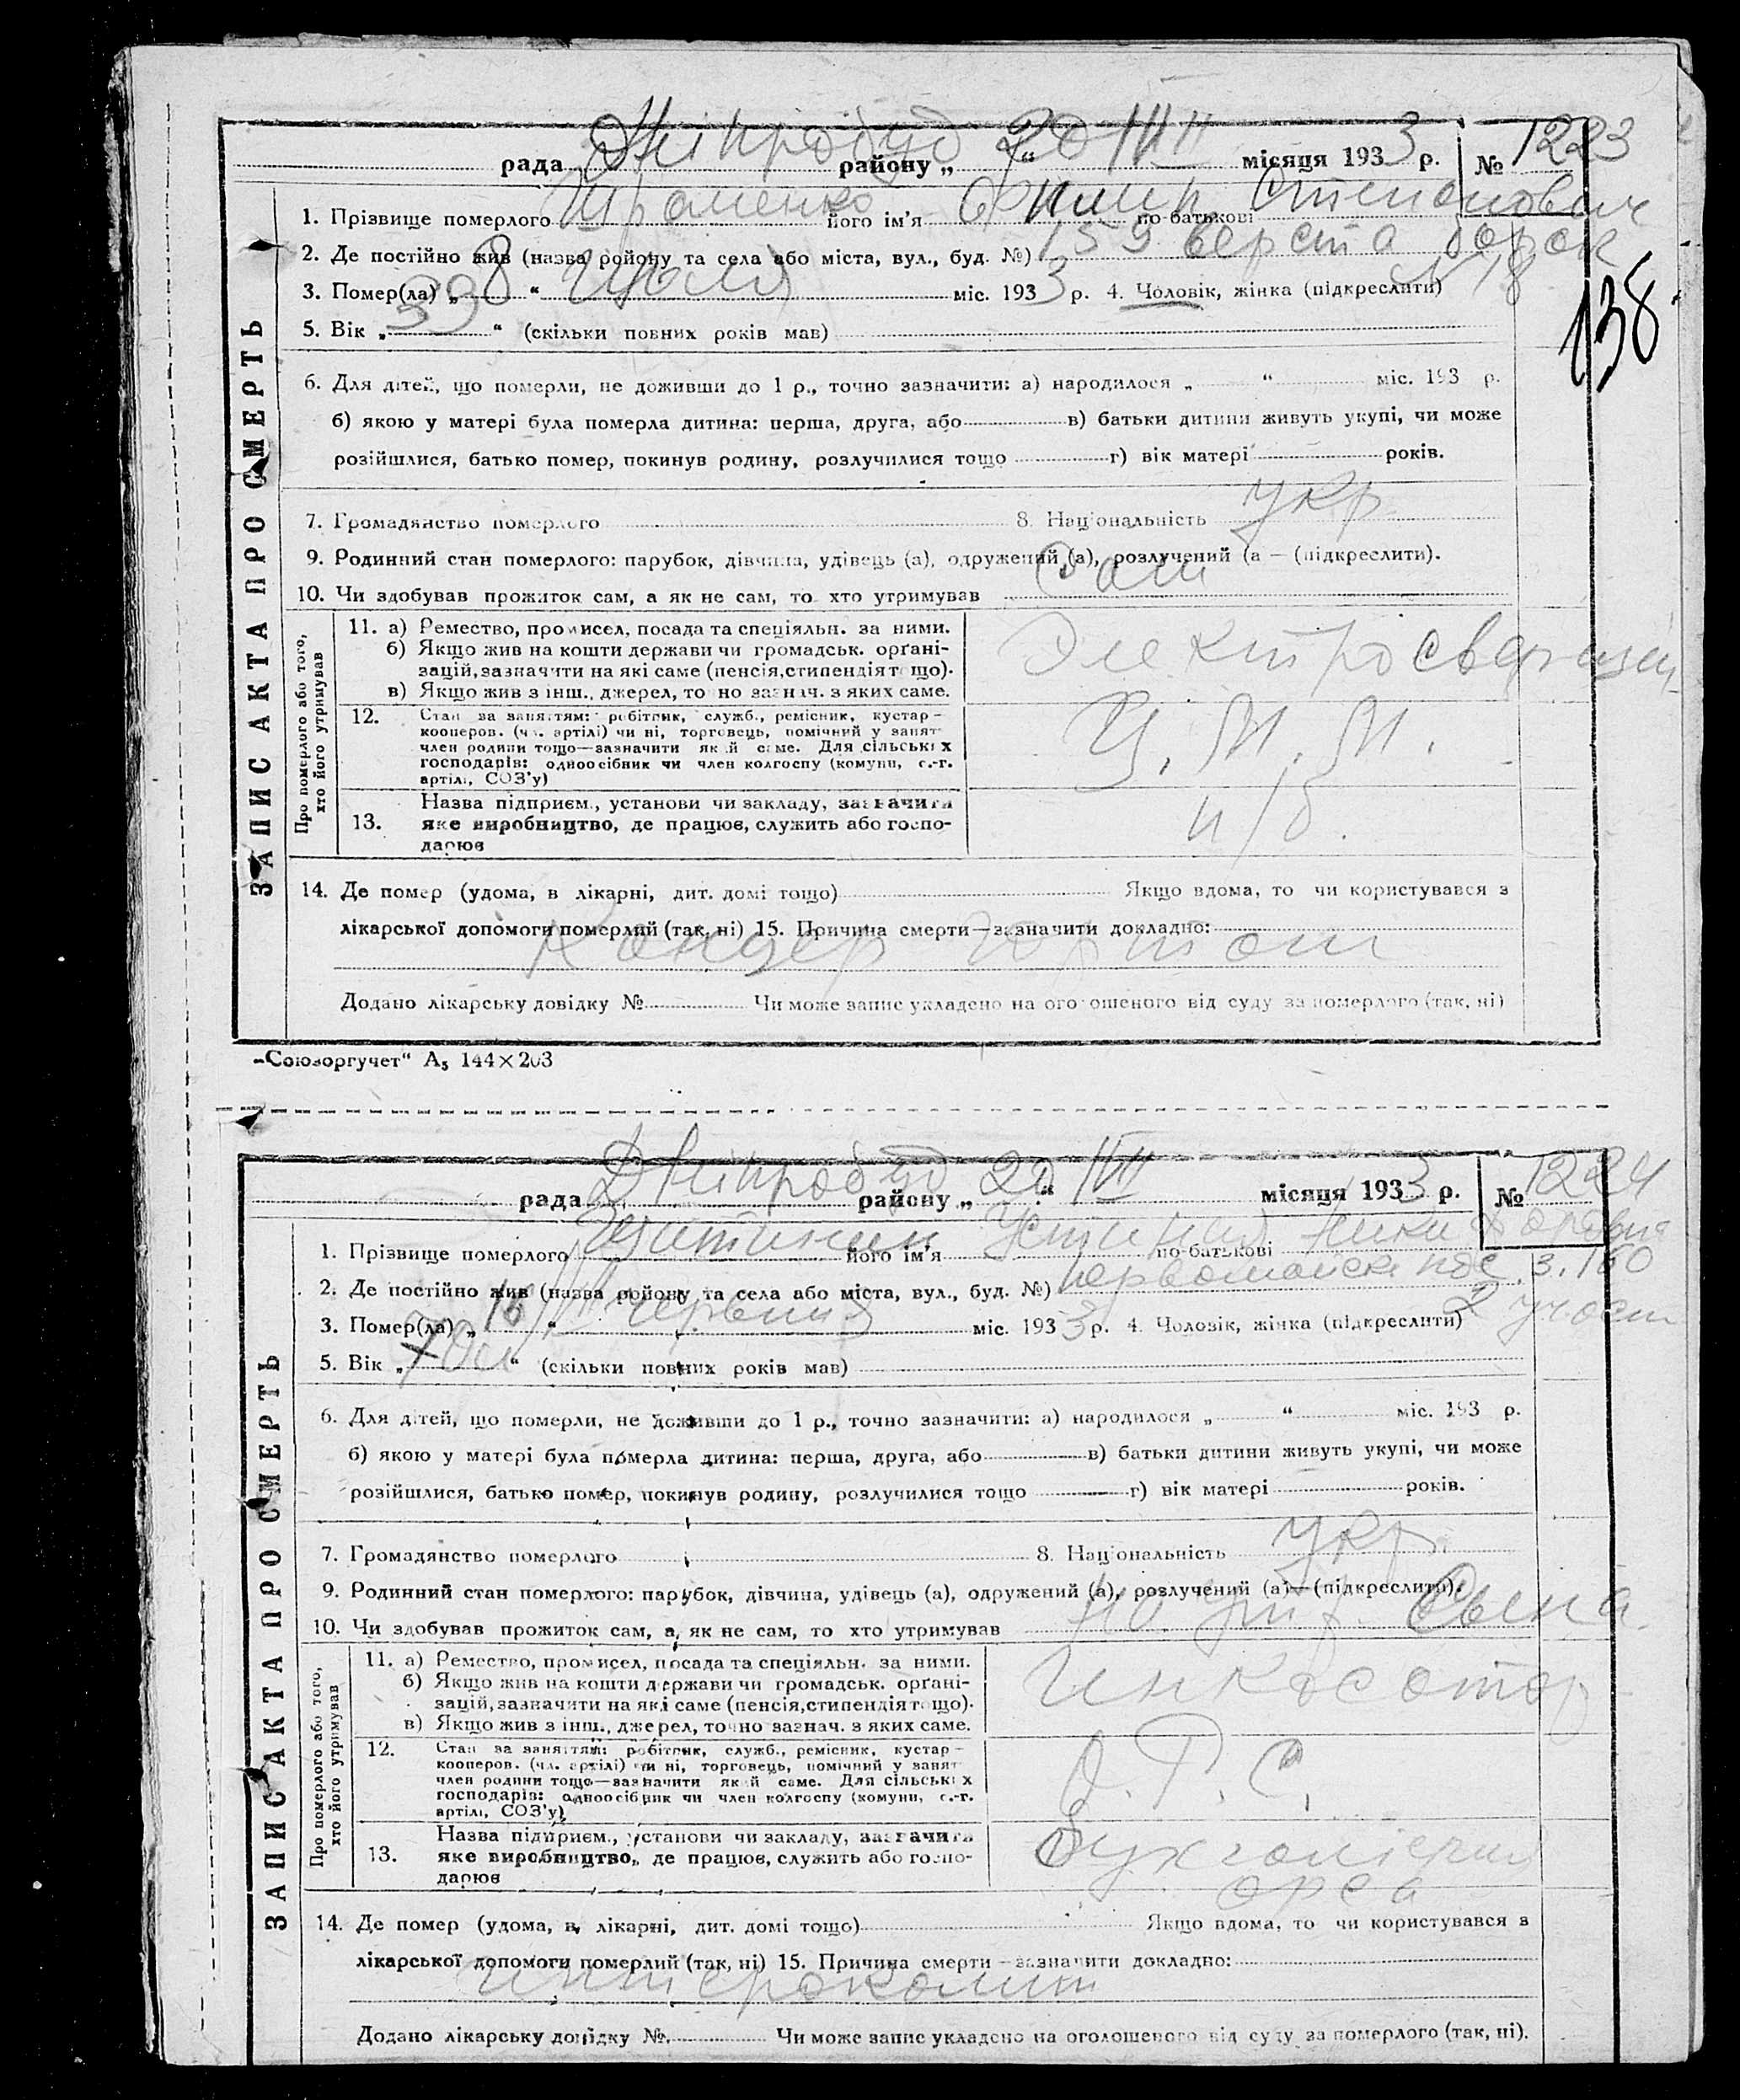 рада Дніпробуд району „ 20 " VII місяця 1933 р. № 1223
1. Прізвище померлого його ім'я по-батькові Степанович
2. Де постійно жив (назва ройону та села або міста, вул., буд. №) 159 верста барак
№ 18
3. Помер(ла) „ 8 “ Июля міс. 1933 р. 4. Чоловік, жінка (підкреслити)
138
5. Вік „ 39 “ (скільки повних років мав)
6. Для дітей, що померли, не доживши до 1 р., точно зазначити: а) народилося „ “ міс. 193 р.
б) якою у матері була померла дитина: перша, друга, або в) батьки дитини живуть укупі, чи може
розійшлися, батько помер, покинув родину, розлучилися тощо г) вік матері років.
7. Громадянство померлого 8. Національність укр
9. Родинний стан померлого: парубок, дівчина, удівець (а), одружений (а), розлучений (а — (підкреслити).
10. Чи здобував прожиток сам, а як не сам, то хто утримував Сам
ЗАПИС АКТА ПРО СМЕРТЬ
Про померлого або того, хто його утримував
11. а) Ремество, промисел, посада та спеціяльн. за ними.
б) Якщо жив на кошти держави чи громадськ. орґані-
зацій, зазначити на які саме (пенсія, стипендія тощо).
в) Якщо жив з інш., джерел, точно зазнач. з яких саме.
Электросварщик
12. Стан за заняттям: робітник, служб., ремісник, кустар —
кооперов. (чл. артілі) чи ні, торговець, помічний у занят
член родини тощо—зазначити який саме. Для сільських
господарів: одноосібник чи член колгоспу (комуни, с.-г.
артілі, СОЗ'у)
Ц. М. М.
13. Назва підприєм., установи чи закладу, зазначити
яке виробництво, де працює, служить або госпо-
дарює
п/б.
14. Де помер (удома, в лікарні, дит. домі тощо) Якщо вдома, то чи користувався з
лікарської допомоги померлий (так, ні) 15. Причина смерти—зазначити докладно:
Додано лікарську довідку № Чи може запис укладено на оголошеного від суду за померлого (так, ні)
„Союзоргучет“ А₅ 144×203
рада Дніпробуд району „ 20 “ VII місяця 1933 р. № 1224
1. Прізвище померлого його ім'я Устиния по-батькові
2. Де постійно жив (назва ройону та села або міста, вул., буд. №) Первомайск. пос. 3. 160
2 участ
3. Помер(ла) „ 16 “ червня міс. 1933 р. 4. Чоловік, жінка (підкреслити)
5. Вік „ 70 л “ (скільки повних років мав)
6. Для дітей, що померли, не доживши до 1 р., точно зазначити: а) народилося „ “ міс. 193 р.
б) якою у матері була померла дитина: перша, друга, або в) батьки дитини живуть укупі, чи може
розійшлися, батько помер, покинув родину, розлучилися тощо г) вік матері років.
7. Громадянство померлого 8. Національність укр.
9. Родинний стан померлого: парубок, дівчина, удівець (а), одружений (а), розлучений (а)—(підкреслити).
10. Чи здобував прожиток сам, а як не сам, то хто утримував на утр. Сына
ЗАПИС АКТА ПРО СМЕРТЬ
Про померлого або того, хто його утримував
11. а) Ремество, промисел, посада та спеціяльн. за ними.
б) Якщо жив на кошти держави чи громадськ. орґані-
зацій, зазначити на які саме (пенсія, стипендія тощо).
в) Якщо жив з інш., джерел, точно зазнач. з яких саме.
Инкасотор
12. Стан за заняттям: робітник, служб., ремісник, кустар —
кооперов. (чл. артілі) чи ні, торговець, помічний у занят
член родини тощо—зазначити який саме. Для сільських
господарів: одноосібник чи член колгоспу (комуни, с.-г.
артілі, СОЗ'у)
О. Р. С.
13. Назва підприєм., установи чи закладу, зазначити
яке виробництво, де працює, служить або госпо-
дарює
Бухгалтерия
орса
14. Де помер (удома, в лікарні, дит. домі тощо) Якщо вдома, то чи користувався з
лікарської допомоги померлий (так, ні) 15. Причина смерти—зазначити докладно:
интероколит
Додано лікарську довідку № Чи може запис укладено на оголошеного від суду за померлого (так, ні).